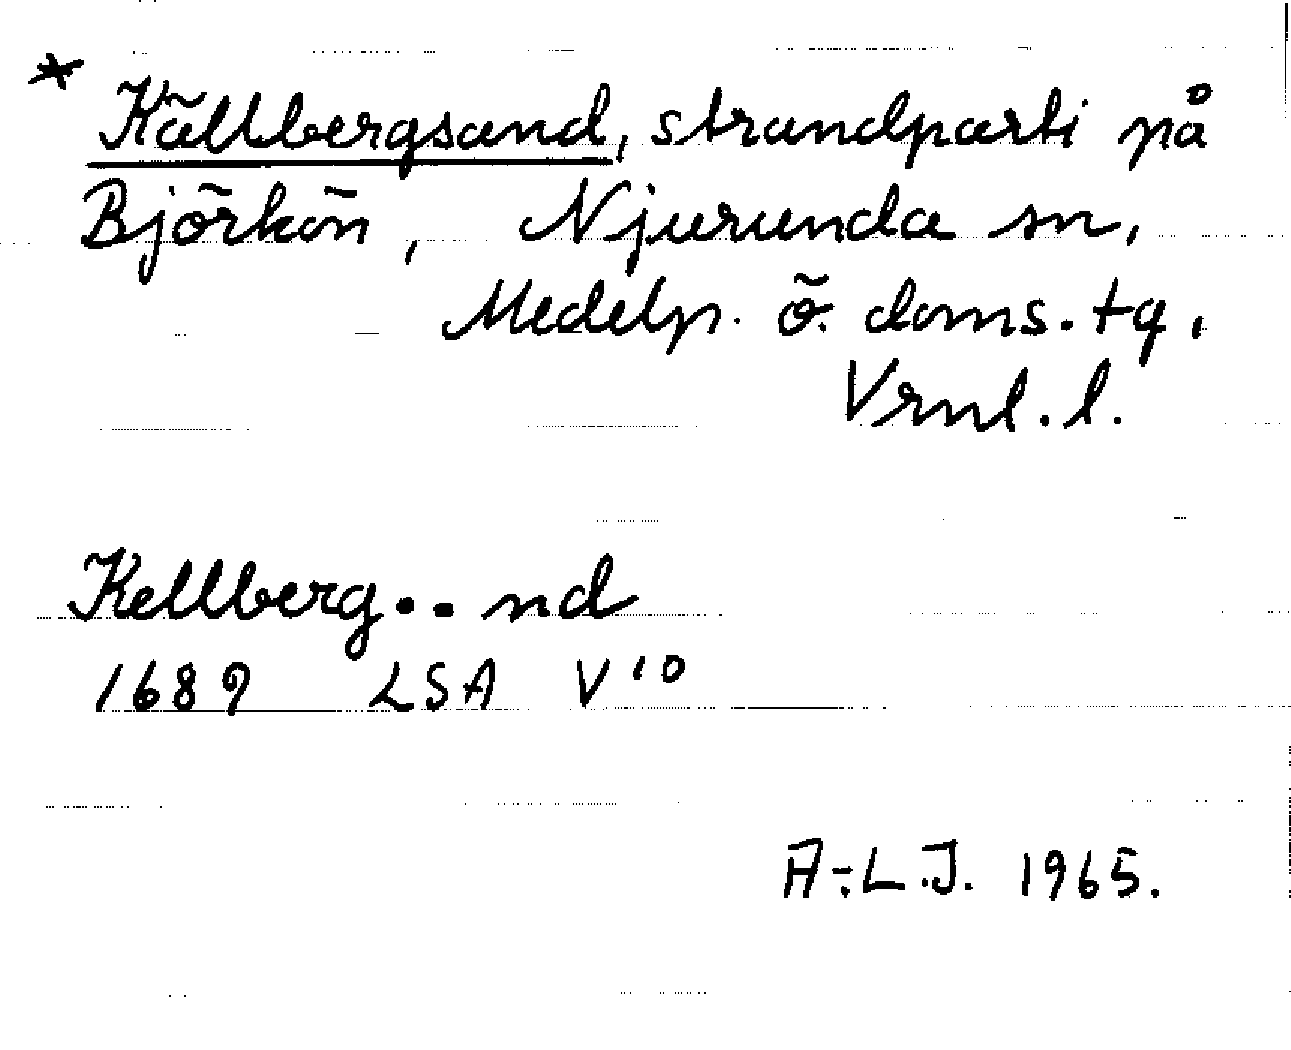 * Källbergsand, strandparti på
Björkön, Njurunda sn,
Medelp. ö. doms. tg,
Vrnl. l.
Kellberg.. nd
1689 LSA V 10
A-L.J. 1965.